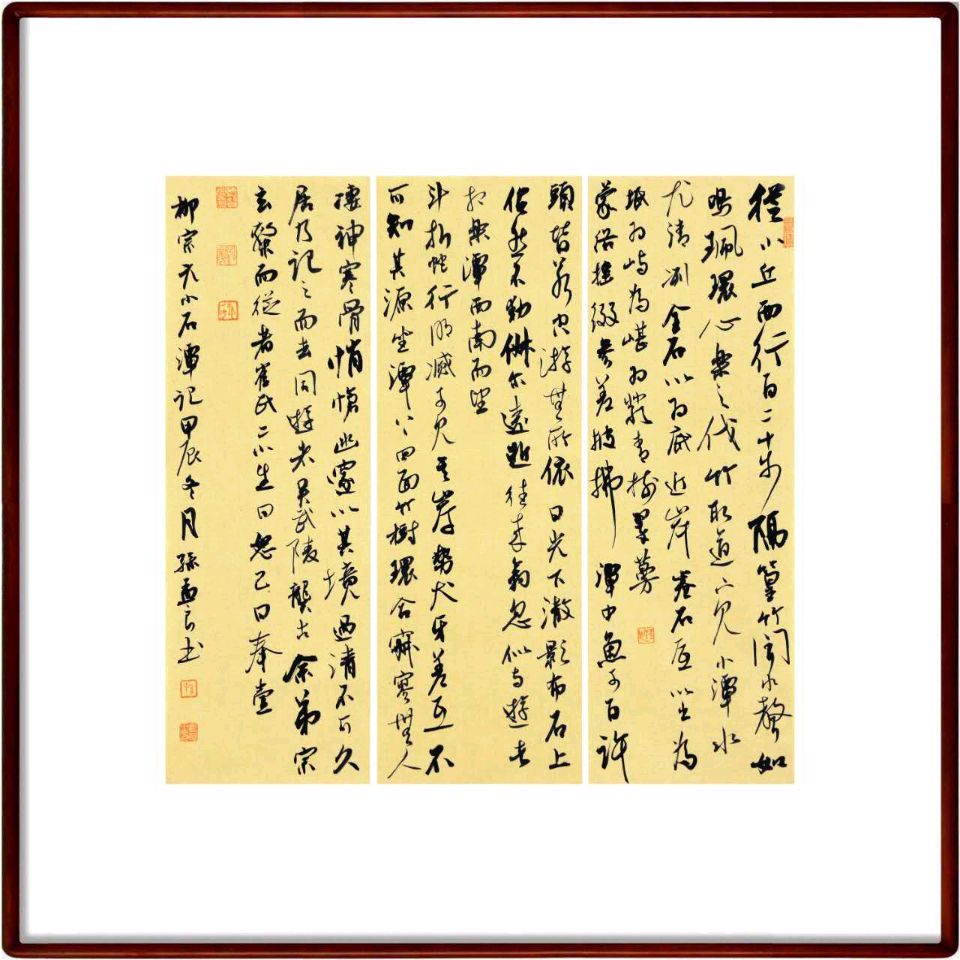 從小丘而行百二十步隔篁竹聞水聲如
鳴珮環心樂之伐竹取道下見小潭水
尤清冽全石以为底近岸卷石底以出為
坻为嶼為嵁为巖青樹翠蔓
蒙絡摇綴參差披拂潭中魚可百許
頭皆若空游無所依日光下澈影布石上
佁然不動俶尔遠逝往来翕忽似与遊者
相樂潭西南而望
斗折蛇行明滅可見其岸勢犬牙差互不
可知其源坐潭上四面竹樹環合寂寥無人
悽神寒骨悄愴幽邃以其境過清不可久
居乃記之而去同遊者吴武陵龔古余弟宗
玄隸而從者崔氏二小生曰恕己曰奉壹
柳宗元小石潭记甲辰冬月孫孟书